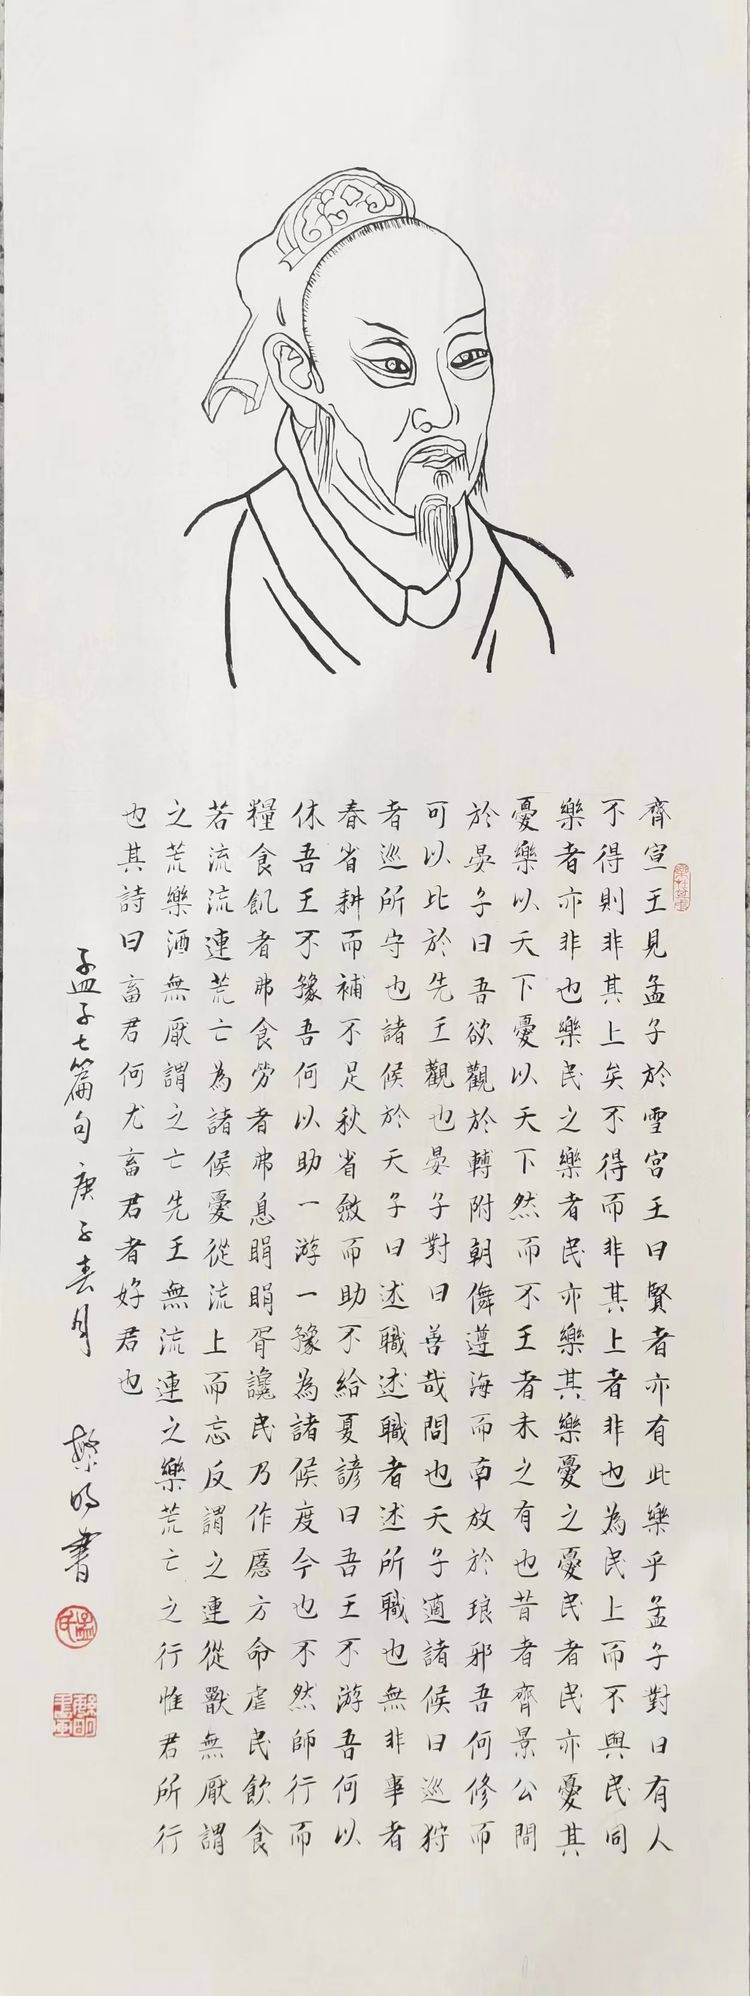 齊宣王見孟子於雪宮王曰賢者亦有此樂乎孟子對曰有人
不得則非其上矣不得而非其上者非也為民上而不與民同
樂者亦非也樂民之樂者民亦樂其樂憂之憂民者民亦憂其
憂樂以天下憂以天下然而不王者未之有也昔者齊景公問
於晏子曰吾欲觀於轉附朝儛遵海而南放於琅邪吾何修而
可以比於先王觀也晏子對曰善哉問也天子適諸侯曰巡狩
者巡所守也諸侯於天子曰述職述職者述所職也無非事者
春省耕而補不足秋省斂而助不給夏諺曰吾王不游吾何以
休吾王不豫吾何以助一游一豫為諸侯度今也不然師行而
糧食飢者弗食勞者弗息睊睊胥讒民乃作慝方命虐民飲食
若流流連荒亡為諸侯憂從流上而忘反謂之連從獸無厭謂
之荒樂酒無厭謂之亡先王無流連之樂荒亡之行惟君所行
也其詩曰畜君何尤畜君者好君也
孟子七篇句 庚子春月 繁明書